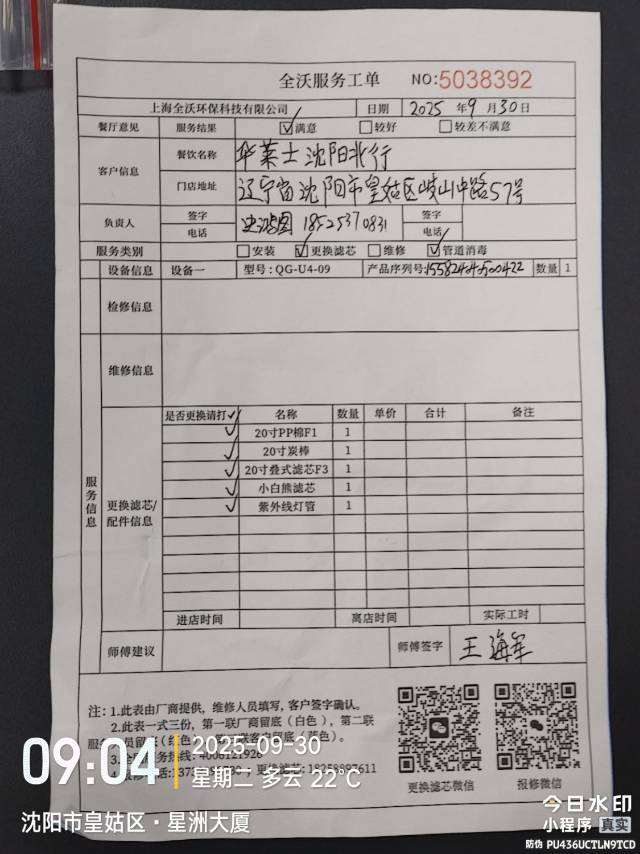 全沃服务工单 NO:5038392
上海全沃环保科技有限公司 日期 2025 年 9 月 30 日
餐厅意见 服务结果 ☑满意 □较好 □较差不满意
客户信息 餐饮名称 华莱士沈阳北行
门店地址 辽宁省沈阳市皇姑区岐山中路57号
负责人 签字 电话 18525370831 签字 电话
服务类别 □安装 ☑更换滤芯 □维修 ☑管道消毒
设备信息 设备一 型号:QG-U4-09 产品序列号: 数量 1
检修信息
服务信息
维修信息
更换滤芯/配件信息
是否更换请打✓ 名称 数量 单价 合计 备注
✓ 20寸PP棉F1 1
✓ 20寸炭棒 1
✓ 20寸叠式滤芯F3 1
✓ 小白熊滤芯 1
✓ 紫外线灯管 1
进店时间 离店时间 实际工时
师傅建议 师傅签字 王海军
注:1.此表由厂商提供,维修人员填写,客户签字确认。
2.此表一式三份,第一联厂商留底(白色),第二联
更换滤芯微信 报修微信
09:04
2025-09-30
星期二 多云 22℃
沈阳市皇姑区·星洲大厦
今日水印
小程序 真实
防伪 PU436UCTLN9TCD